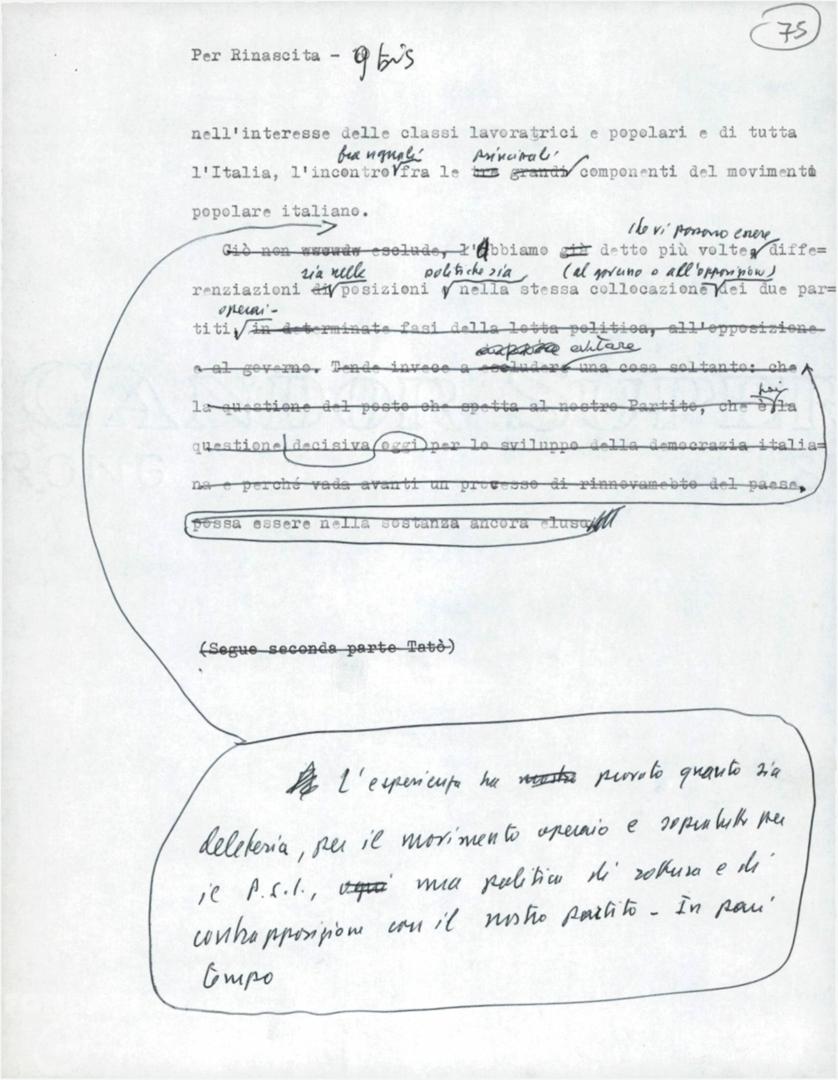 75
Per Rinascita - 9 bis
nell'interesse delle classi lavoratrici e popolari e di tutta
fra uguali principali
l'Italia, l'incontro fra le tre grandi componenti del movimento
popolare italiano.
che vi possono essere
Ciò non esclude, l'Abbiamo già detto più volte, diffe=
sia nelle politiche sia (al governo o all'opposizione)
renziazioni di posizioni nella stessa collocazione dei due par=
operai-
titi, in determinate fasi della lotta politica, all'opposizione
evitare
e al governo. Tende invece a escludere una cosa soltanto: che
poi
la questione del posto che spetta al nostro Partito, che è la
questione decisiva oggi per lo sviluppo della democrazia italia=
na e perché vada avanti un processo di rinnovamebto del paese,
possa essere nella sostanza ancora elusa
(Segue seconda parte Tatò)
L'esperienza ha mostra provato quanto sia
deleteria, per il movimento operaio e soprattutto per
il P.S.I., ogni una politica di rottura e di
contrapposizione con il nostro partito - In pari
tempo